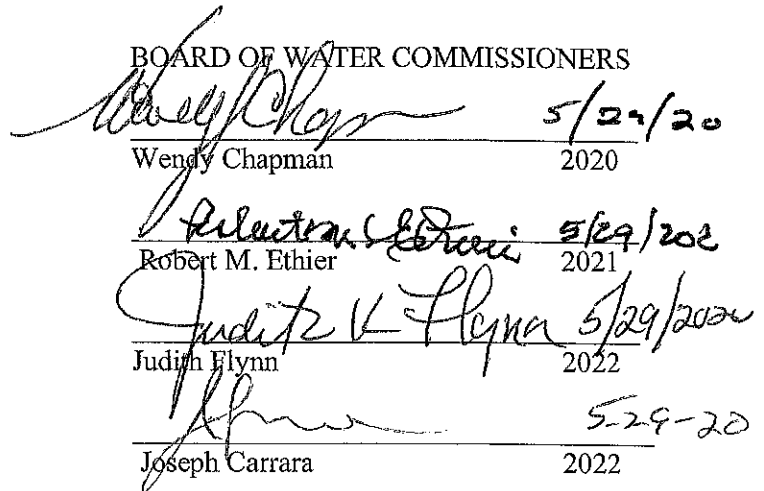 BOARD OF WATER COMMISSIONERS
Wendy Chapman 5/29/20
Wendy Chapman 2020
5/29/202
Robert M. Ethier 2021
Judith K Flynn 5/29/2020
Judith Flynn 2022
5-29-20
Joseph Carrara 2022